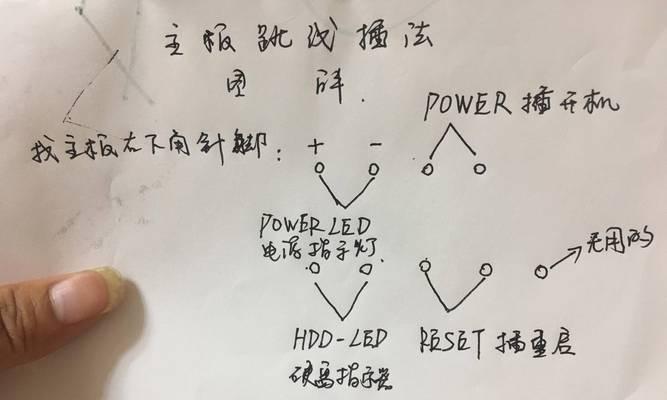 主板跳线插法
图解.
POWER 插开机
找主板右下角针脚: + -
POWER LED
电源指示灯.
无用的
HDD-LED
RESET 插重启
硬离指示器